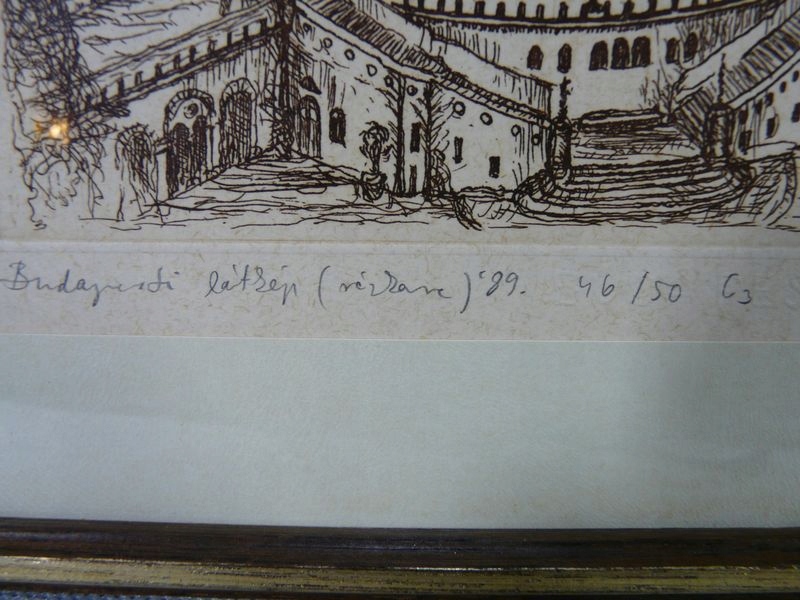 Budapesti látkép (rézkarc) '89. 46/50 C3